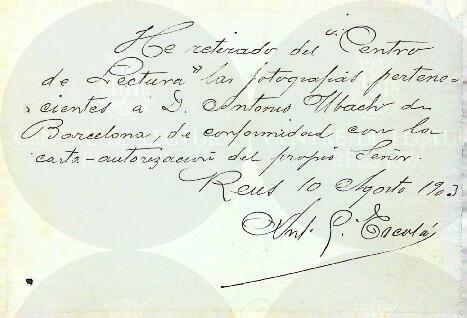 He retirado del "Centro
de Lectura" las fotografias pertene-
cientes a D. Antonio Ubach de
Barcelona, de conformidad con la
carta-autorización del propio Señor.
Reus 10 Agosto 1903
Ant. G. Escolá